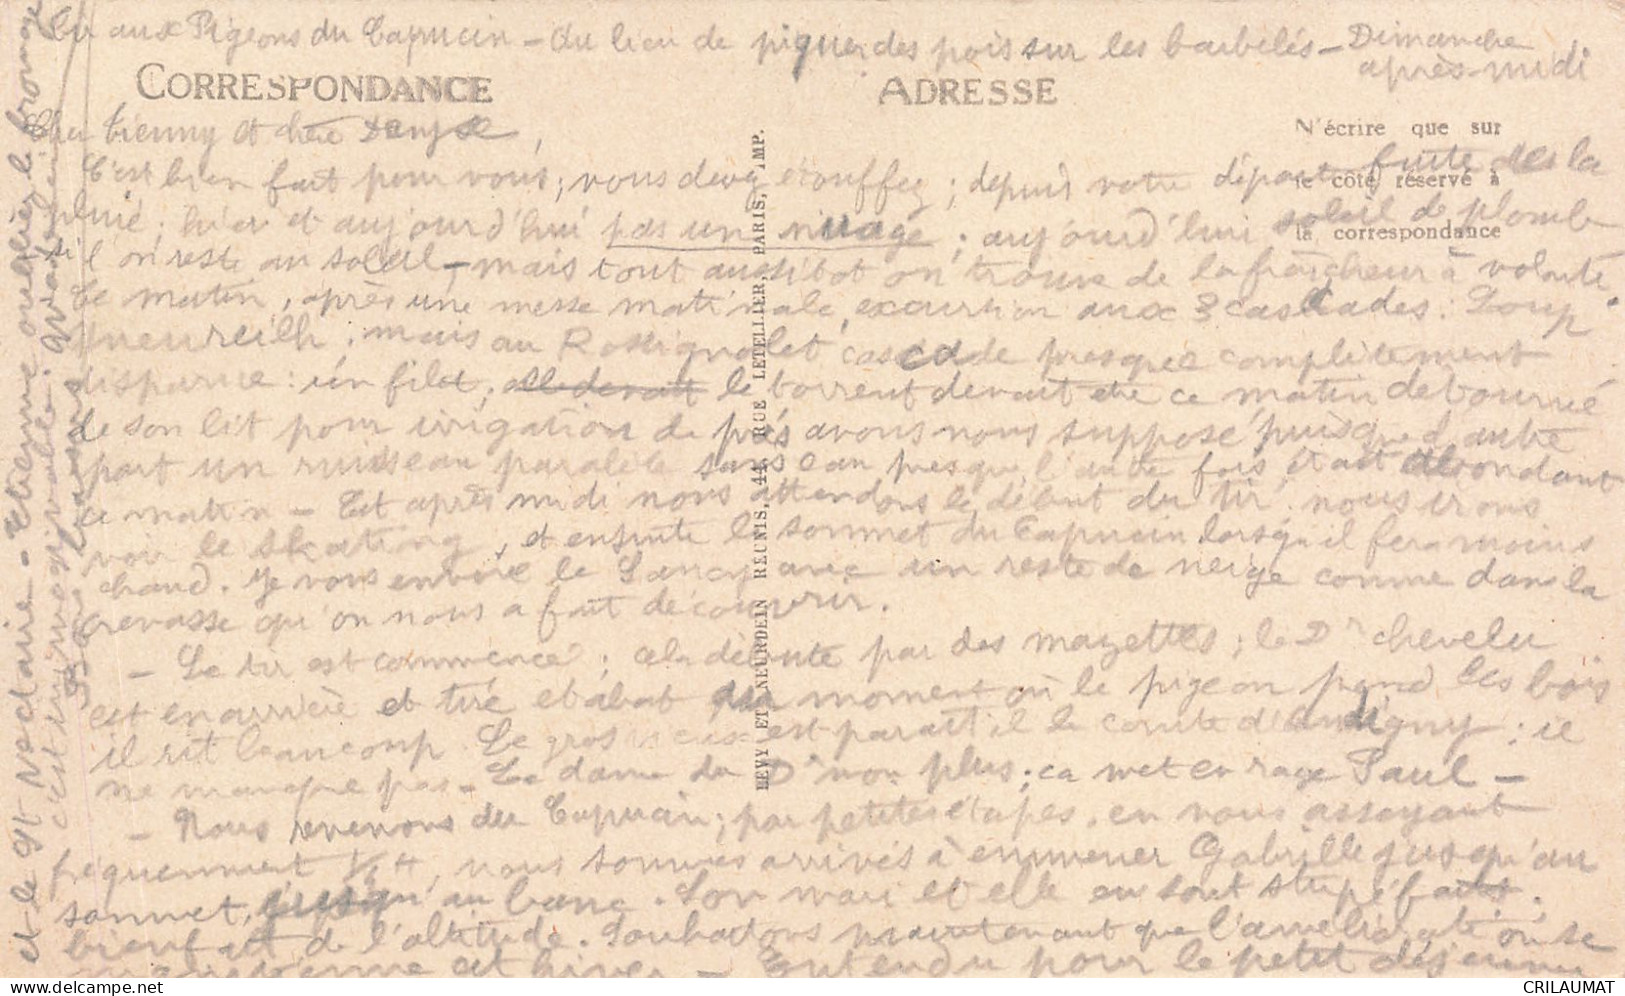 Tir aux Pigeons du Capucin - Au lieu de piquer des pois sur les barbelés - Dimanche
après-midi
CORRESPONDANCE
ADRESSE
N'écrire que sur
le côté réservé à
la correspondance
Cher Etienny et chère
C'est bien fait pour vous, vous devez étouffer ; depuis votre départ fuite de la
pluie ; hier et aujourd'hui pas un nuage ; aujourd'hui soleil de plomb
si l'on reste au soleil - mais tout aussitôt on trouve de la fraîcheur à volonté.
Ce matin, après une messe matinale, excursion aux 3 cascades. Loup
Queureilh ; mais au Rossignolet cascade presque complètement
disparue : un filet, elle devait le torrent devait être ce matin detourné
de son lit pour irrigation de prés avons nous supposé, puisque d'autre
part un ruisseau parallèle sans eau presque l'autre fois était abondant
ce matin - Cet après midi nous attendons le début du tir, nous irons
voir le skating, et ensuite le sommet du Capucin lorsqu'il fera moins
chaud. Je vous envoie le Sancy avec un reste de neige comme dans la
crevasse qu'on nous a fait découvrir.
- Le tir est commencé ; cela débute par des mazettes ; le Dr chevelu
est en arrière et tire et abat au moment où le pigeon prend les bois
il rit beaucoup. Le gros est paraît il le comte d'Andigny ; il
ne manque pas - La dame du Dr non plus ; ca met en rage Paul -
- Nous revenons du Capucin ; par petites étapes, en nous assayant
fréquemment 1/4 H, nous sommes arrivés à emmener Gabrielle jusqu'au
sommet, jusqu'au banc. Son mari et elle en sont stupéfaits ;
bienfait de l'altitude. Souhaitons maintenant que l'amélioration se
maintienne cet hiver - Entendu pour le petit déjeuner
et le St Nectaire - Etienne oubliez le bromage
c'est inimaginable.
LEVY ET NEURDEIN REUNIS, 44, RUE LETELLIER, PARIS, IMP.
CRILAUMAT